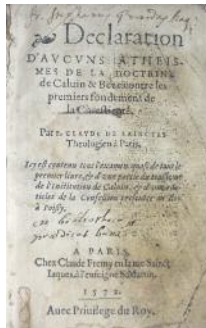 Declaration
D'AVCVNS ATHEIS-
MES DE LA DOCTRINE
de Caluin & Beze contre les
premiers fondemens de
la Chrestienté.
Par F. CLAVDE DE SAINCTES
Theologien à Paris.
Icy est contenu tout l'examen quasi de tout le
premier liure, & d'vne partie du troisiesme
de l'Institution de Caluin, & d'vne ar-
ticles de la Confession presentee au Roy
à Poissy.
A PARIS,
Chez Claude Fremy en la rue Sainct
Iaques, à l'enseigne S. Martin.
1572.
Auec Priuilege du Roy.